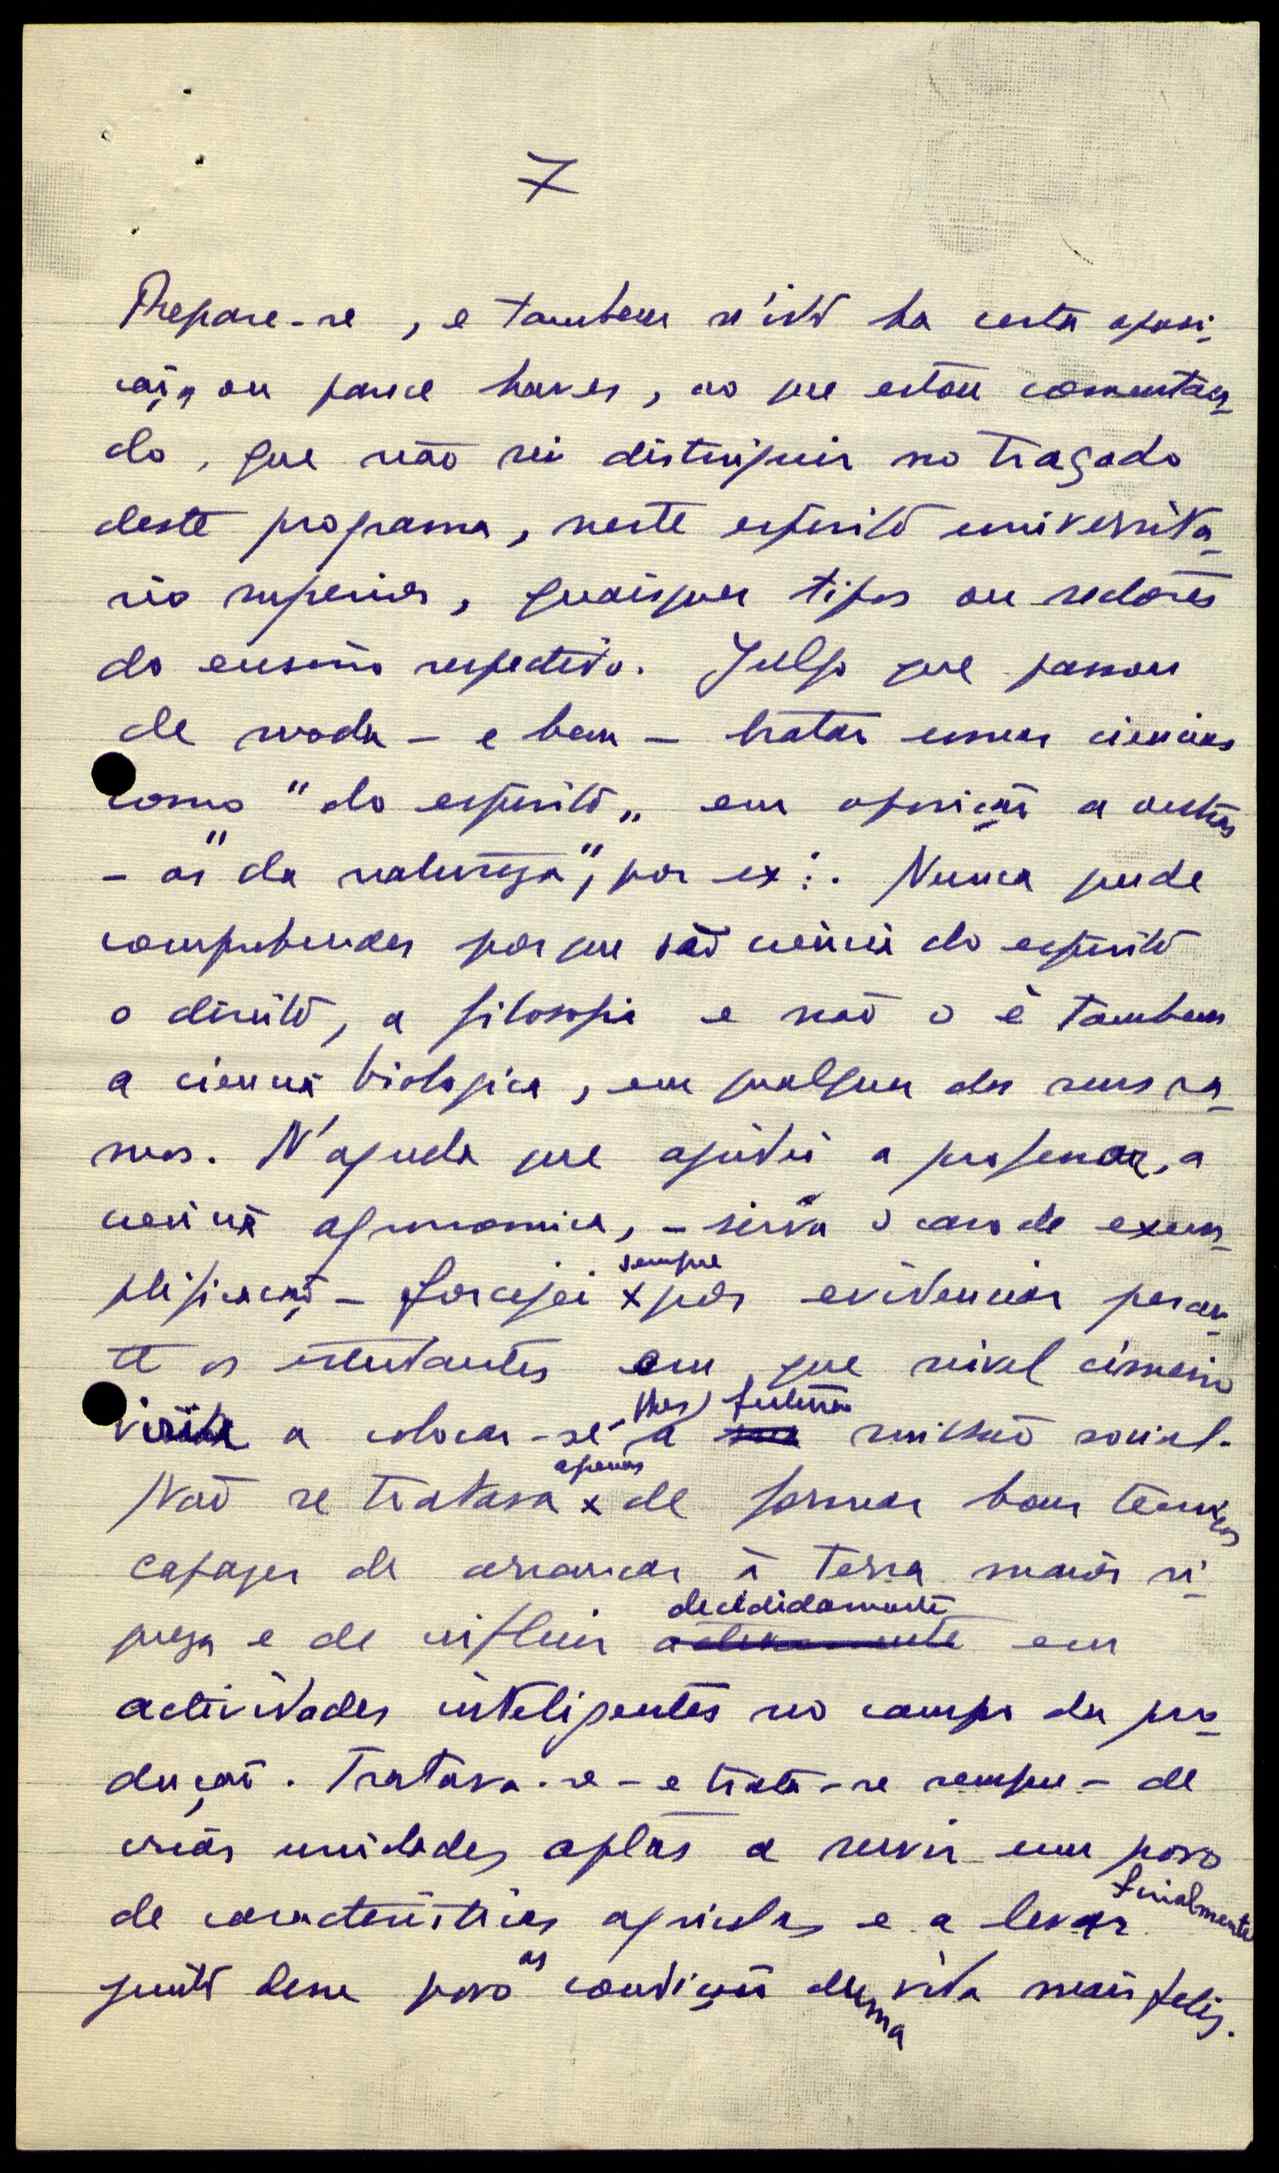 7
Repare-se, e tambem n'isto ha certa oposi-
ção, ou parece haver, ao que estou comentan-
do, que não sei distinguir no traçado
deste programa, neste espirito universita-
rio superior, quaisquer tipos ou sectores
do ensino respectivo. Julgo que passou
de moda - e bem - tratar umas ciencias
como "do espirito" em oposição a outras
- as "da natureza", por ex:. Nunca pude
comprehender por que são ciencia do espirito
o direito, a filosofia e não o é tambem
a ciencia biologica, em qualquer dos seus ra-
mos. N'aquela que ajudei a professar, a
ciencia agronomica, - sirva o caso de exem-
plificação - forcejei x por evidenciar peran-
sempre
te os estudantes em que nivel cimeiro
viria a colocar-se-lhes a sua missão social.
futura
Não se tratava x de formar bons tecnicos
apenas
capazes de arrancar á terra maior ri-
queza e de influir activamente em
decididamente
actividades inteligentes no campo da pro-
dução. Tratava-se - e trata-se sempre - de
criar unidades aptas a servir um povo
de caracteristicas agricolas e a levar
finalmente
junto desse povo as condições duma vida mais feliz.